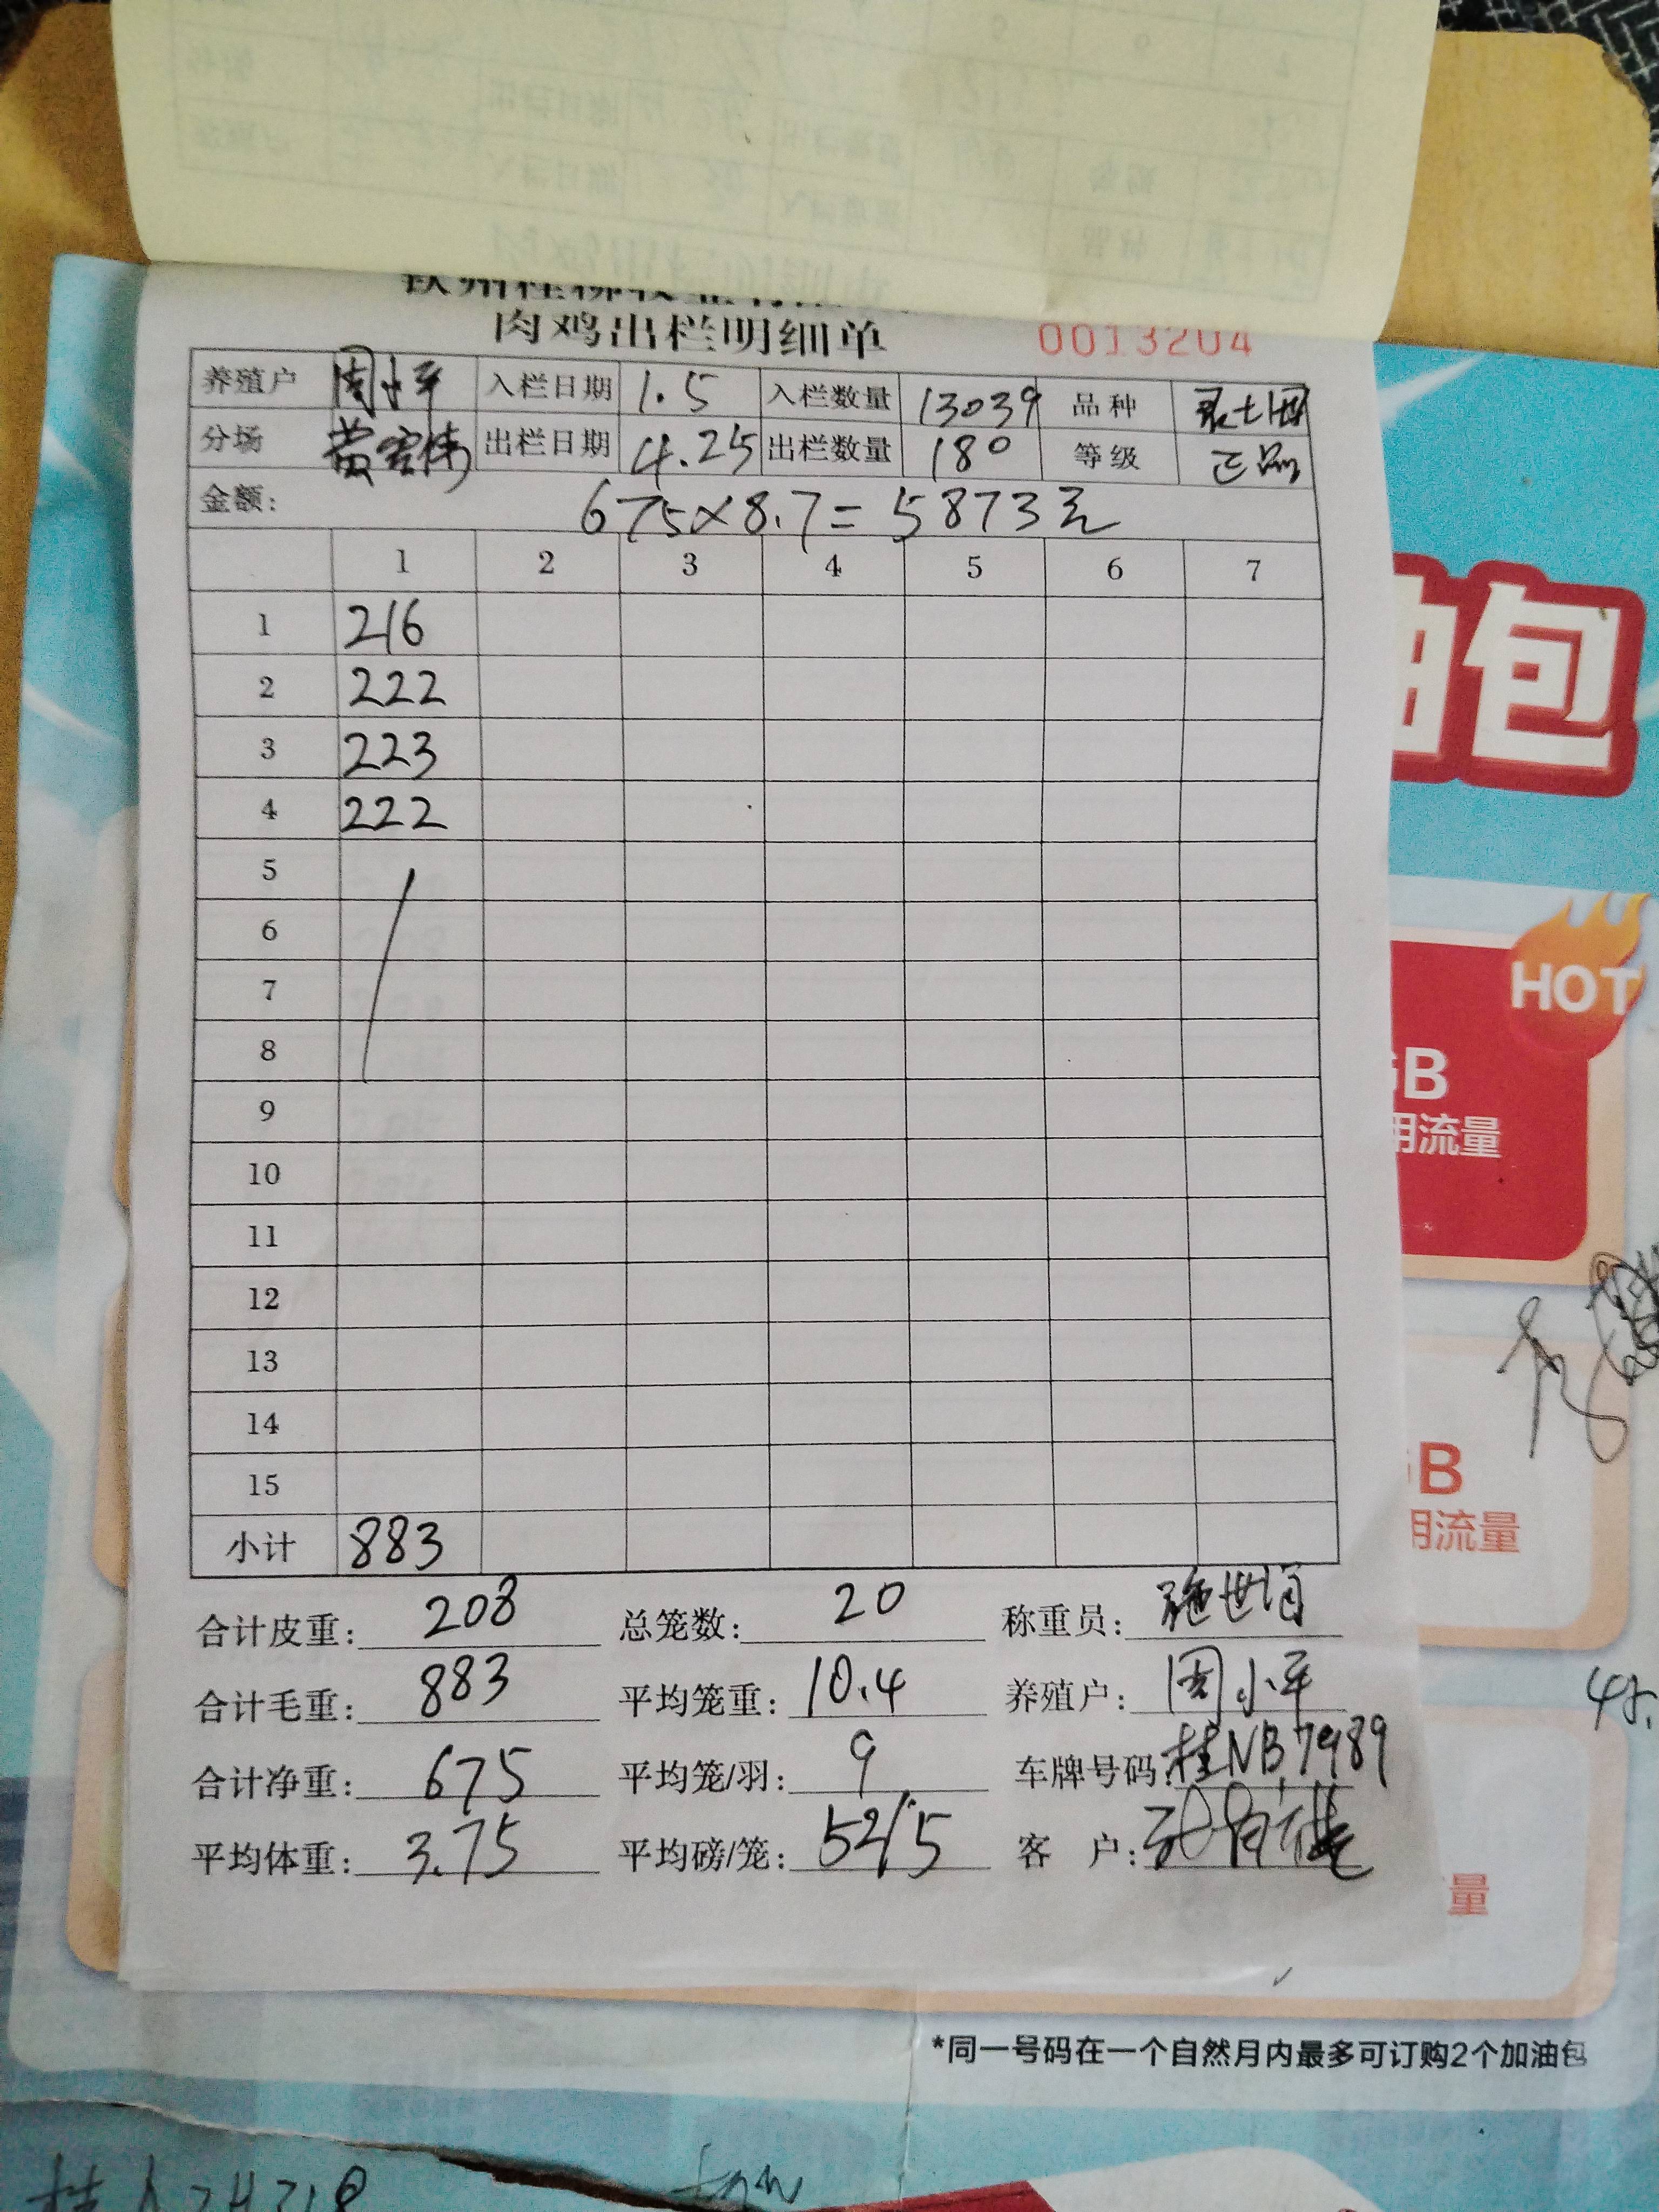 肉鸡出栏明细单 0013204
养殖户 周小平 入栏日期 1.5 入栏数量 13039 品种
分场 黄宏伟 出栏日期 4.25 出栏数量 180 等级 正品
金额: 675×8.7=5873元
1 2 3 4 5 6 7
1 216
2 222
3 223
4 222
5
6
7
8
9
10
11
12
13
14
15
小计 883
合计皮重: 208 总笼数: 20 称重员:
合计毛重: 883 平均笼重: 10.4 养殖户: 周小平
合计净重: 675 平均笼/羽: 9 车牌号码: 桂NB7989
平均体重: 3.75 平均磅/笼: 5 客 户:
油包
HOT
GB
用流量
GB
用流量
量
*同一号码在一个自然月内最多可订购2个加油包